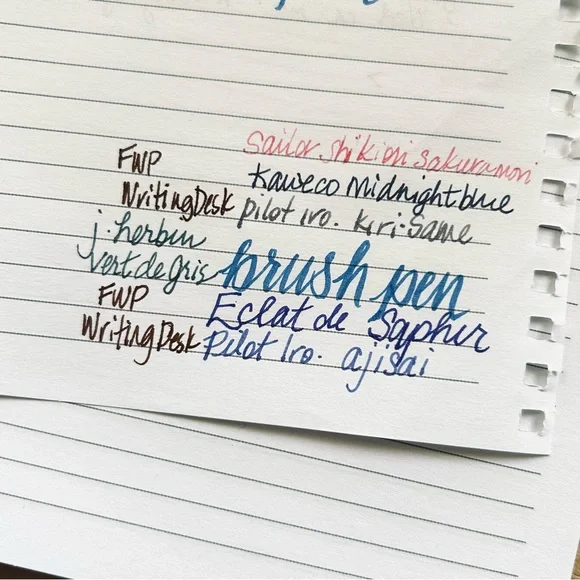 Sailor Shikiori Sakuramori
FWP
Kaweco Midnight blue
Writing Desk
Pilot iro. Kiri-Same
j. herbin
vert de gris
brush pen
FWP
Eclat de Saphir
Writing Desk
Pilot Iro. ajisai